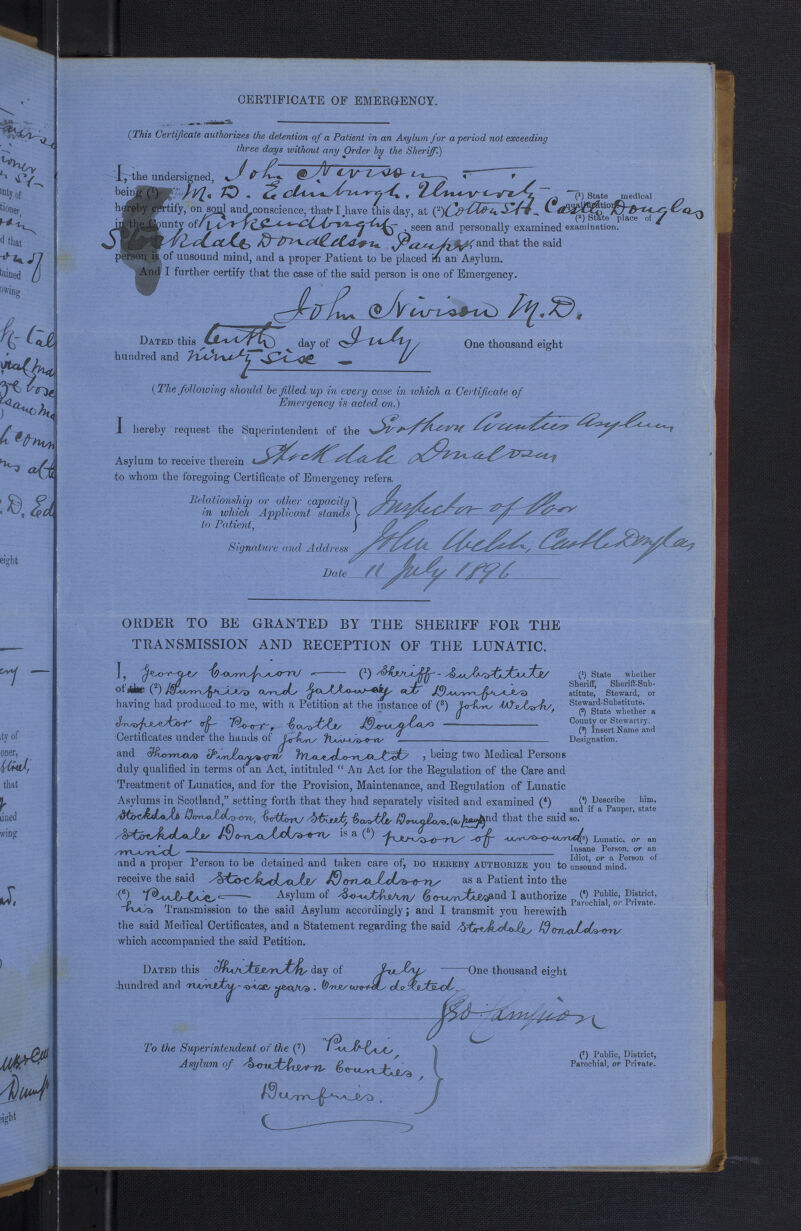 CERTIFICATE OF EMERGENCY.
(This Certificate authorizes the detention of a Patient in an Asylum for a period not exceeding
three days without any Order by the Sheriff.)
I, the undersigned, John Nivison
being (1) M.D. Edinburgh. University
(1) State medical
qualification.
hereby certify, on soul and conscience, that I have this day, at (2) Cotton St. Castle Douglas
(2) State place of
examination.
in the County of Kirkcudbright seen and personally examined
Stockdale Donaldson Pauper and that the said
person is of unsound mind, and a proper Patient to be placed in an Asylum.
And I further certify that the case of the said person is one of Emergency.
John Nivison M.D.
DATED this tenth day of July One thousand eight
hundred and ninety six
(The following should be filled up in every case in which a Certificate of
Emergency is acted on.)
I hereby request the Superintendent of the Southern Counties Asylum
Asylum to receive therein Stockdale Donaldson
to whom the foregoing Certificate of Emergency refers.
Relationship or other capacity
in which Applicant stands
to Patient,
Inspector of Poor
Signature and Address John Welsh, Castle Douglas
Date 11 July 1896
ORDER TO BE GRANTED BY THE SHERIFF FOR THE
TRANSMISSION AND RECEPTION OF THE LUNATIC.
I, George Campion (1) Sheriff-Substitute
of the (2) Dumfries and Galloway at Dumfries
having had produced to me, with a Petition at the instance of (3) John Welsh,
Inspector of Poor, Castle Douglas
Certificates under the hands of John Nivison
and Thomas Finlayson Macdonald, being two Medical Persons
duly qualified in terms of an Act, intituled "An Act for the Regulation of the Care and
Treatment of Lunatics, and for the Provision, Maintenance, and Regulation of Lunatic
Asylums in Scotland," setting forth that they had separately visited and examined (4)
Stockdale Donaldson, Cotton Street, Castle Douglas. (a pauper) and that the said
Stockdale Donaldson is a (5) person of unsound
mind
and a proper Person to be detained and taken care of, DO HEREBY AUTHORIZE you to
receive the said Stockdale Donaldson as a Patient into the
(6) Public Asylum of Southern Counties and I authorize
his Transmission to the said Asylum accordingly; and I transmit you herewith
the said Medical Certificates, and a Statement regarding the said Stockdale Donaldson
which accompanied the said Petition.
(1) State whether
Sheriff, Sheriff-Sub-
stitute, Steward, or
Steward-Substitute.
(2) State whether a
County or Stewartry.
(3) Insert Name and
Designation.
(4) Describe him,
and if a Pauper, state
so.
(5) Lunatic, or an
Insane Person, or an
Idiot, or a Person of
unsound mind.
(6) Public, District,
Parochial, or Private.
DATED this Thirteenth day of July One thousand eight
hundred and ninety-six years. One word deleted.
Geo Campion
To the Superintendent of the (7) Public,
Asylum of Southern Counties,
Dumfries.
(7) Public, District,
Parochial, or Private.